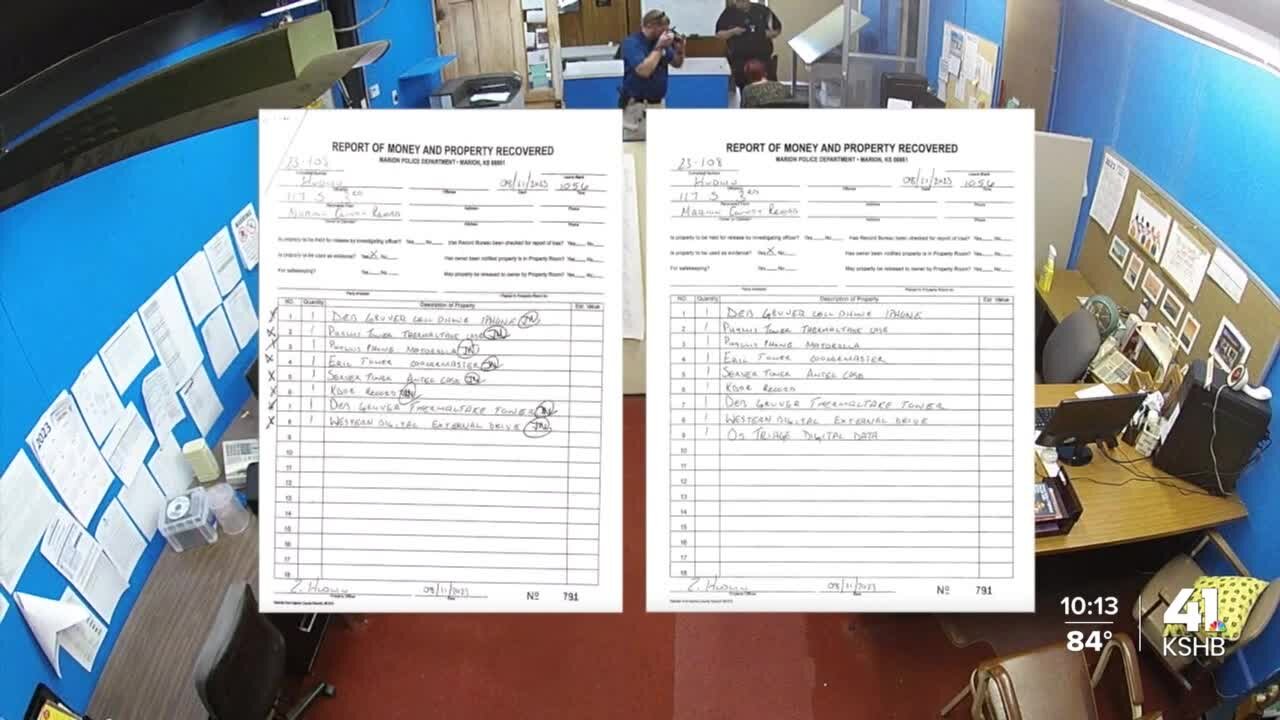 REPORT OF MONEY AND PROPERTY RECOVERED
MARION POLICE DEPARTMENT • MARION, KS 66861
23-108
Leave Blank
08/11/2023 1056
Offense
Date
Time
117 S 3RD
Address
Phone
MARION COUNTY RECORD
Address
Phone
Is property to be held for release by investigating officer? Yes___ No___ Has Record Bureau been checked for report of loss? Yes___ No___
Is property to be used as evidence? Yes X No___ Has owner been notified property is in Property Room? Yes___ No___
For safekeeping? Yes___ No___ May property be released to owner by Property Room? Yes___ No___
NO. Quantity Description of Property Est. Value
X 1 1 DEB GRUVER CELL PHONE IPHONE JN
X 2 1 PHYLLIS TOWER THERMALTAKE CASE JN
X 3 1 PHYLLIS PHONE MOTOROLA JN
X 4 1 ERIC TOWER COOLERMASTER JN
X 5 1 SERVER TOWER ANTEC CASE JN
X 6 1 KDOR RECORD JN
X 7 1 DEB GRUVER THERMALTAKE TOWER JN
X 8 1 WESTERN DIGITAL EXTERNAL DRIVE JN
9
10
11
12
13
14
15
16
17
18
Z. HUDLIN 08/11/2023 Nº 791
Property Officer Date
REPORT OF MONEY AND PROPERTY RECOVERED
MARION POLICE DEPARTMENT • MARION, KS 66861
23-108
Leave Blank
08/11/2023 1056
Offense
Date
Time
117 S 3RD
Address
Phone
MARION COUNTY RECORD
Address
Phone
Is property to be held for release by investigating officer? Yes___ No___ Has Record Bureau been checked for report of loss? Yes___ No___
Is property to be used as evidence? Yes X No___ Has owner been notified property is in Property Room? Yes___ No___
For safekeeping? Yes___ No___ May property be released to owner by Property Room? Yes___ No___
NO. Quantity Description of Property Est. Value
1 1 DEB GRUVER CELL PHONE IPHONE
2 1 PHYLLIS TOWER THERMALTAKE CASE
3 1 PHYLLIS PHONE MOTOROLLA
4 1 ERIC TOWER COOLERMASTER
5 1 SERVER TOWER ANTEC CASE
6 1 KDOR RECORD
7 1 DEB GRUVER THERMALTAKE TOWER
8 1 WESTERN DIGITAL EXTERNAL DRIVE
9 1 OS TRIAGE DIGITAL DATA
10
11
12
13
14
15
16
17
18
Z. HUDLIN 08/11/2023 Nº 791
Property Officer Date
2023
10:13
84°
41
KSHB